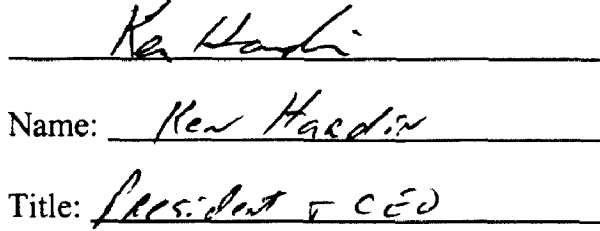 Ken Hardin
Name: Ken Hardin
Title: President + CEO